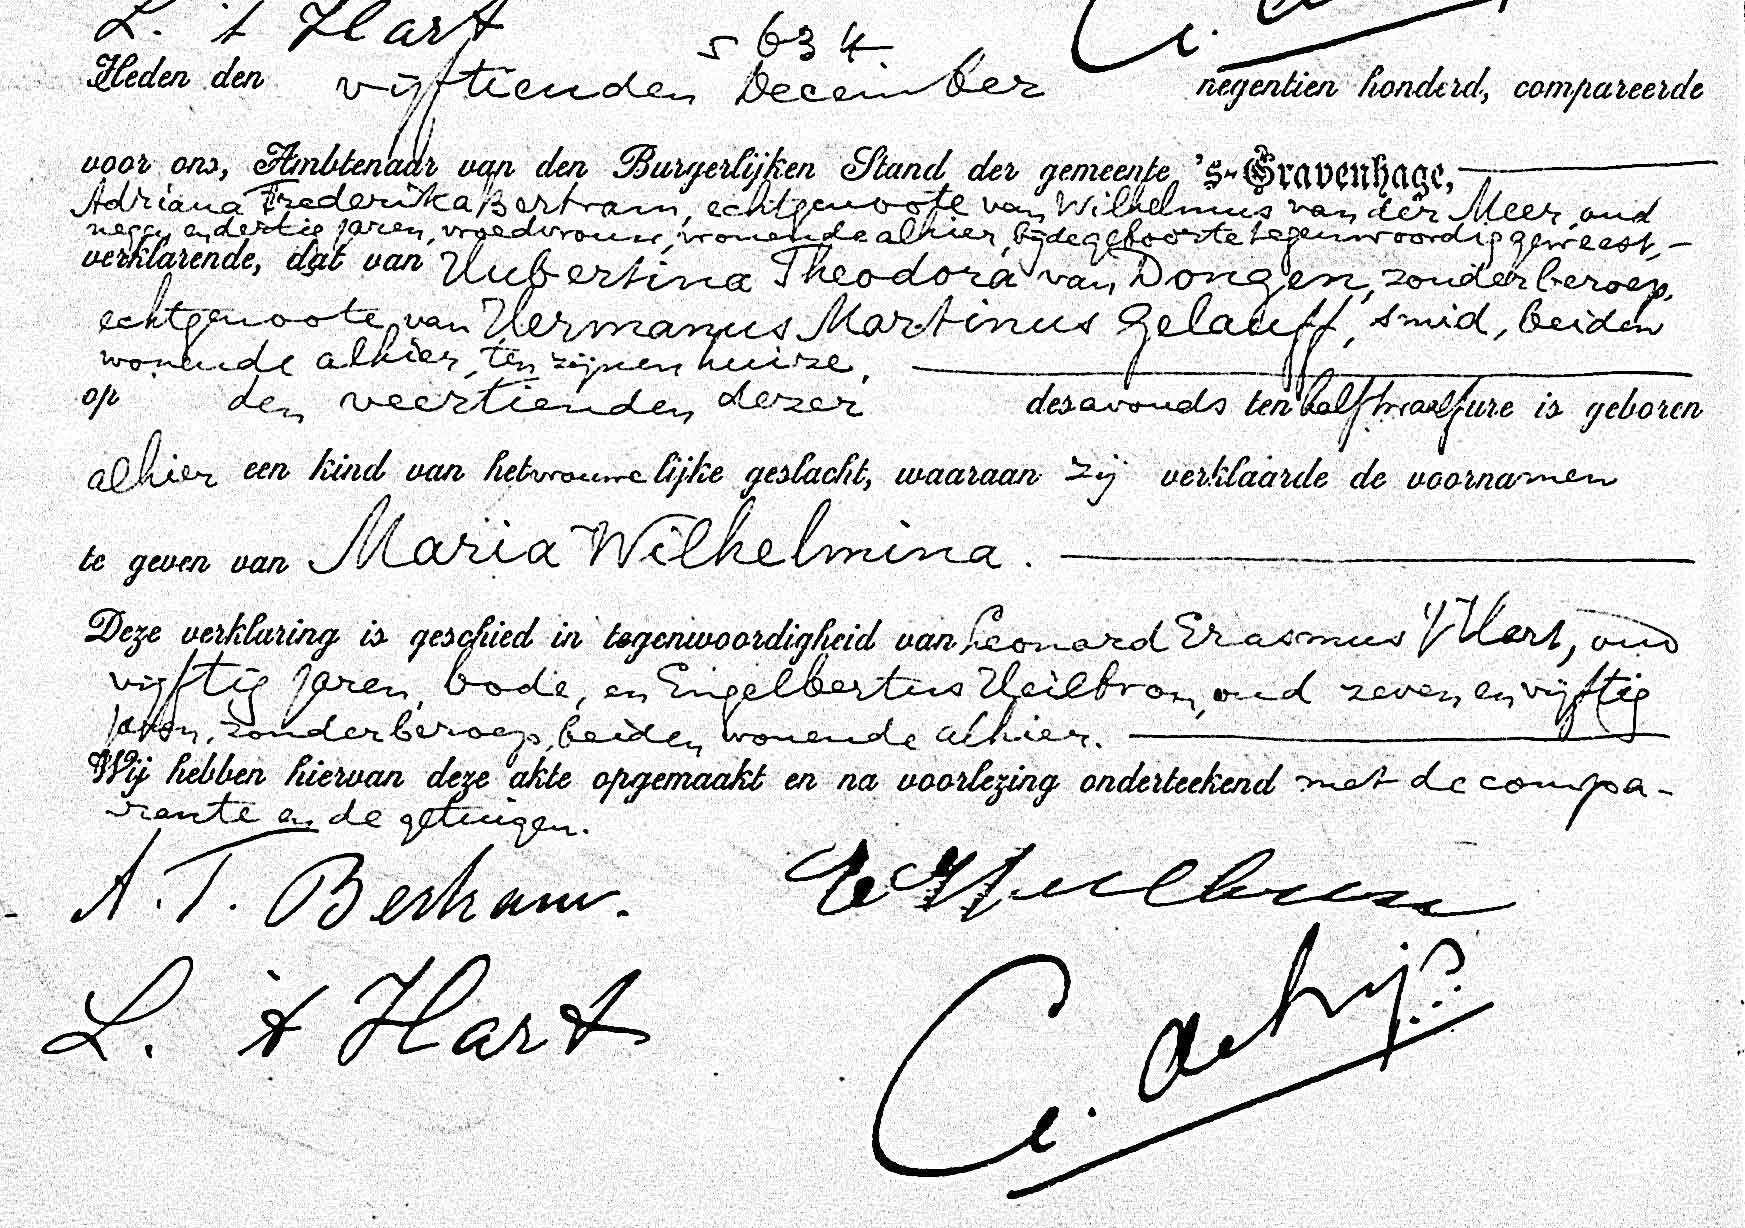 L. 't Hart
5634
Heden den vijftienden December negentien honderd, compareerde
voor ons, Ambtenaar van den Burgerlijken Stand der gemeente 's-Gravenhage,
Adriana Frederika Bertram, echtgenoote van Wilhelmus van der Meer, oud
negen en dertig jaren, vroedvrouw, wonende alhier, bij de geboorte tegenwoordig geweest,
verklarende, dat van Hubertina Theodora van Dongen, zonder beroep,
echtgenoote van Hermanus Martinus Gelauff, smid, beiden
wonende alhier, ten zijnen huize,
op den veertienden dezer des avonds ten half twaalf ure is geboren
alhier een kind van het vrouwelijke geslacht, waaraan zij verklaarde de voornamen
te geven van Maria Wilhelmina.
Deze verklaring is geschied in tegenwoordigheid van Leonard Erasmus 't Hart, oud
vijftig jaren, bode, en Engelbertus Heilbron, oud zeven en vijftig
jaren, zonder beroep, beiden wonende alhier.
Wij hebben hiervan deze akte opgemaakt en na voorlezing onderteekend met de compa-
rante en de getuigen.
A. F. Bertram.
E Heilbron
L. 't Hart